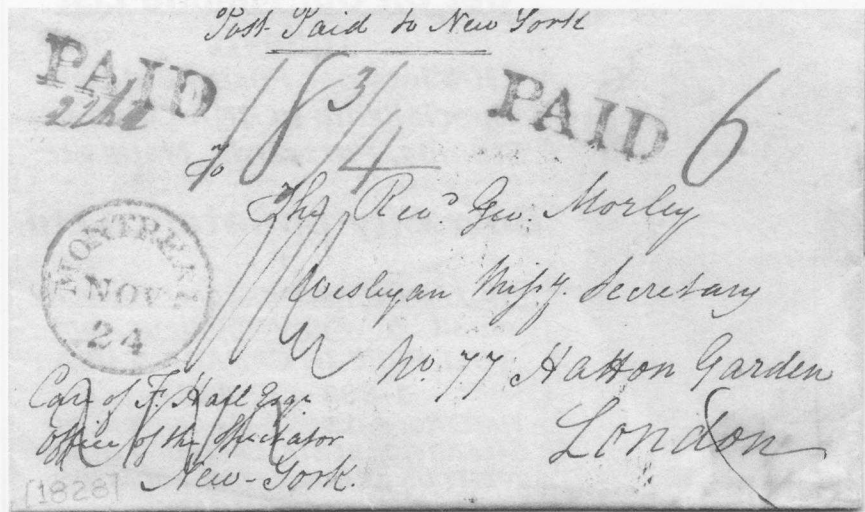 Post Paid to New York
PAID 18 3/4 PAID 6
To
The Revd. Geo. Morley
Wesleyan Missy. Secretary
No. 77 Hatton Garden
London
MONTREAL
NOV
24
Care of F. Hall Esqr
Office of the Spectator
New-York.
[1828]